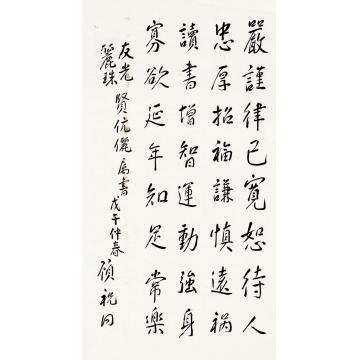 嚴謹律己寬恕待人
忠厚招福謙慎遠祸
讀書增智運動強身
寡欲延年知足常樂
友光麗珠賢伉儷属書戊午仲春
祝同